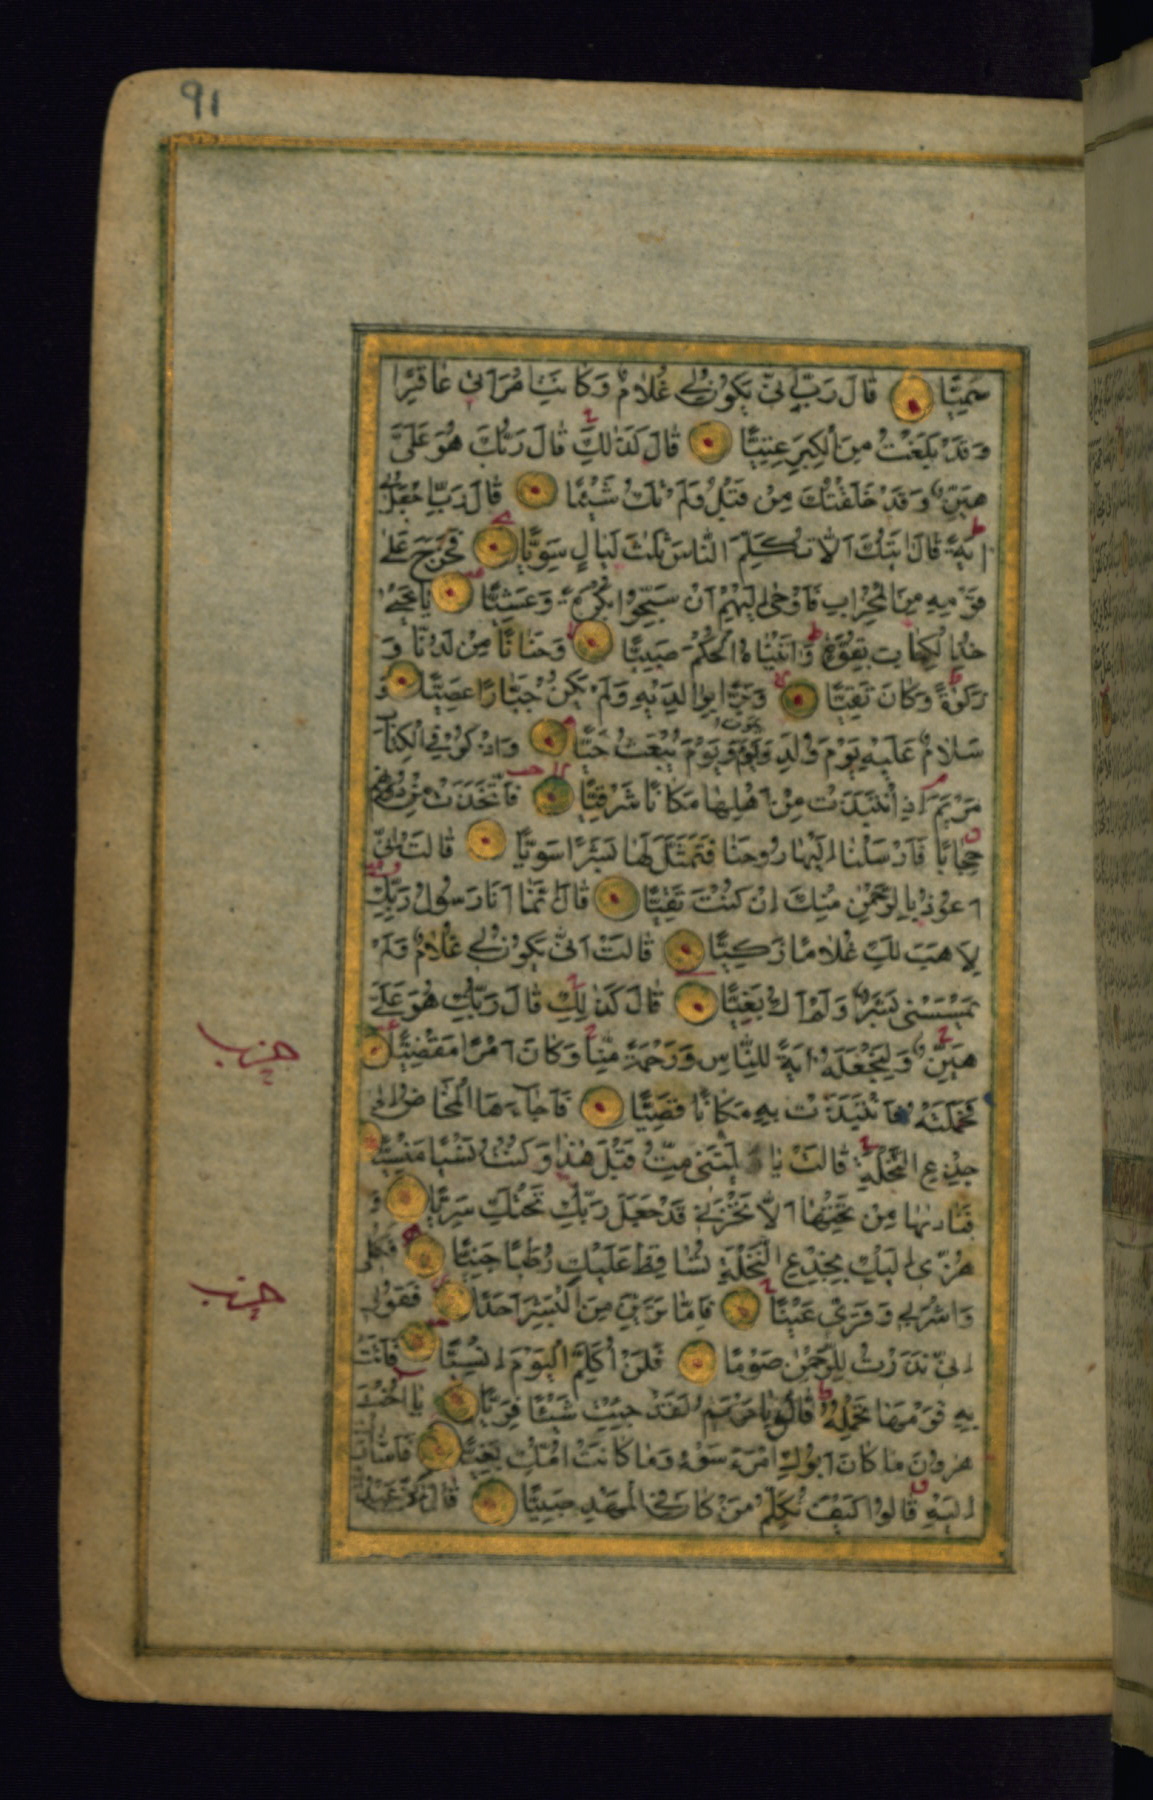 91
سَمِيًّا قَالَ رَبِّ اَنّٰى يَكُونُ لِى غُلَامٌ وَكَانَتِ امْرَاَتِى عَاقِرًا
وَقَدْ بَلَغْتُ مِنَ الْكِبَرِ عِتِيًّا قَالَ كَذٰلِكَ قَالَ رَبُّكَ هُوَ عَلَىَّ
هَيِّنٌ وَقَدْ خَلَقْتُكَ مِنْ قَبْلُ وَلَمْ تَكُ شَيْئًا قَالَ رَبِّ اجْعَلْ لِى
اٰيَةً قَالَ اٰيَتُكَ اَلَّا تُكَلِّمَ النَّاسَ ثَلٰثَ لَيَالٍ سَوِيًّا فَخَرَجَ عَلٰى
قَوْمِهِ مِنَ الْمِحْرَابِ فَاَوْحٰى اِلَيْهِمْ اَنْ سَبِّحُوا بُكْرَةً وَعَشِيًّا يَا يَحْيٰى
خُذِ الْكِتَابَ بِقُوَّةٍ وَاٰتَيْنَاهُ الْحُكْمَ صَبِيًّا وَحَنَانًا مِنْ لَدُنَّا وَ
زَكٰوةً وَكَانَ تَقِيًّا وَبَرًّا بِوَالِدَيْهِ وَلَمْ يَكُنْ جَبَّارًا عَصِيًّا وَ
سَلَامٌ عَلَيْهِ يَوْمَ وُلِدَ وَيَوْمَ يَمُوتُ وَيَوْمَ يُبْعَثُ حَيًّا وَاذْكُرْ فِى الْكِتَابِ
مَرْيَمَ اِذِ انْتَبَذَتْ مِنْ اَهْلِهَا مَكَانًا شَرْقِيًّا فَاتَّخَذَتْ مِنْ دُونِهِمْ
حِجَابًا فَاَرْسَلْنَا اِلَيْهَا رُوحَنَا فَتَمَثَّلَ لَهَا بَشَرًا سَوِيًّا قَالَتْ اِنِّى
اَعُوذُ بِالرَّحْمٰنِ مِنْكَ اِنْ كُنْتَ تَقِيًّا قَالَ اِنَّمَا اَنَا رَسُولُ رَبِّكِ
لِاَهَبَ لَكِ غُلَامًا زَكِيًّا قَالَتْ اَنّٰى يَكُونُ لِى غُلَامٌ وَلَمْ
يَمْسَسْنِى بَشَرٌ وَلَمْ اَكُ بَغِيًّا قَالَ كَذٰلِكِ قَالَ رَبُّكِ هُوَ عَلَىَّ
هَيِّنٌ وَلِنَجْعَلَهُ اٰيَةً لِلنَّاسِ وَرَحْمَةً مِنَّا وَكَانَ اَمْرًا مَقْضِيًّا
فَحَمَلَتْهُ فَانْتَبَذَتْ بِهِ مَكَانًا قَصِيًّا فَاَجَاءَهَا الْمَخَاضُ اِلٰى
جِذْعِ النَّخْلَةِ قَالَتْ يَا لَيْتَنِى مِتُّ قَبْلَ هٰذَا وَكُنْتُ نَسْيًا مَنْسِيًّا
فَنَادٰيهَا مِنْ تَحْتِهَا اَلَّا تَحْزَنِى قَدْ جَعَلَ رَبُّكِ تَحْتَكِ سَرِيًّا وَ
هُزِّى اِلَيْكِ بِجِذْعِ النَّخْلَةِ تُسَاقِطْ عَلَيْكِ رُطَبًا جَنِيًّا فَكُلِى
وَاشْرَبِى وَقَرِّى عَيْنًا فَاِمَّا تَرَيِنَّ مِنَ الْبَشَرِ اَحَدًا فَقُولِى
اِنِّى نَذَرْتُ لِلرَّحْمٰنِ صَوْمًا فَلَنْ اُكَلِّمَ الْيَوْمَ اِنْسِيًّا فَاَتَتْ
بِهِ قَوْمَهَا تَحْمِلُهُ قَالُوا يَا مَرْيَمُ لَقَدْ جِئْتِ شَيْئًا فَرِيًّا يَا اُخْتَ
هٰرُونَ مَا كَانَ اَبُوكِ امْرَءَ سَوْءٍ وَمَا كَانَتْ اُمُّكِ بَغِيًّا فَاَشَارَتْ
اِلَيْهِ قَالُوا كَيْفَ نُكَلِّمُ مَنْ كَانَ فِى الْمَهْدِ صَبِيًّا قَالَ اِنِّى عَبْدُ
حزب
حزب